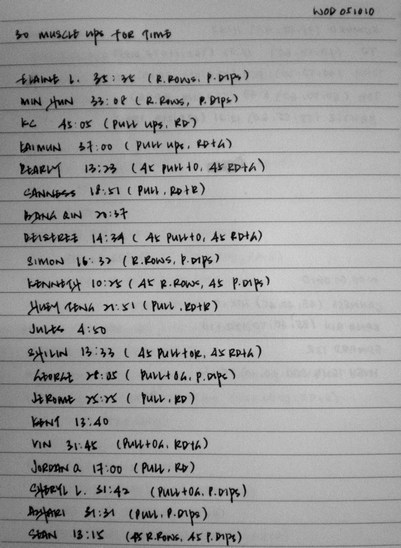 WOD 051010
30 MUSCLE UPS FOR TIME
ELAINE L. 35:35 (R.ROWS, P.DIPS)
MIN HUN 33:08 (R.ROWS, P.DIPS)
KC 45:05 (PULL UPS, RD)
KAIMUN 37:00 (PULL UPS, RD+G)
PEARLY 13:23 (45 PULL+O, 45 RD+G)
CANNESS 18:51 (PULL, RD+R)
BANG QIN 20:37
DEISTREE 14:39 (45 PULL+O, 45 RD+G)
SIMON 16:32 (R.ROWS, P.DIPS)
KENNETH 10:25 (45 R.ROWS, 45 P.DIPS)
HUEY TENG 21:51 (PULL, RD+R)
JULES 4:50
SHILIN 13:33 (45 PULL+OR, 45 RD+G)
GEORGE 28:05 (PULL+OG, P.DIPS)
JEROME 25:25 (PULL, RD)
KENT 13:40
VIN 31:45 (PULL+OG, RD+G)
JORDAN Q. 17:00 (PULL, RD)
SHERYL L. 31:42 (PULL+OG, P.DIPS)
AZHARI 31:31 (PULL, P.DIPS)
SEAN 13:15 (45 R.ROWS, 45 P.DIPS)